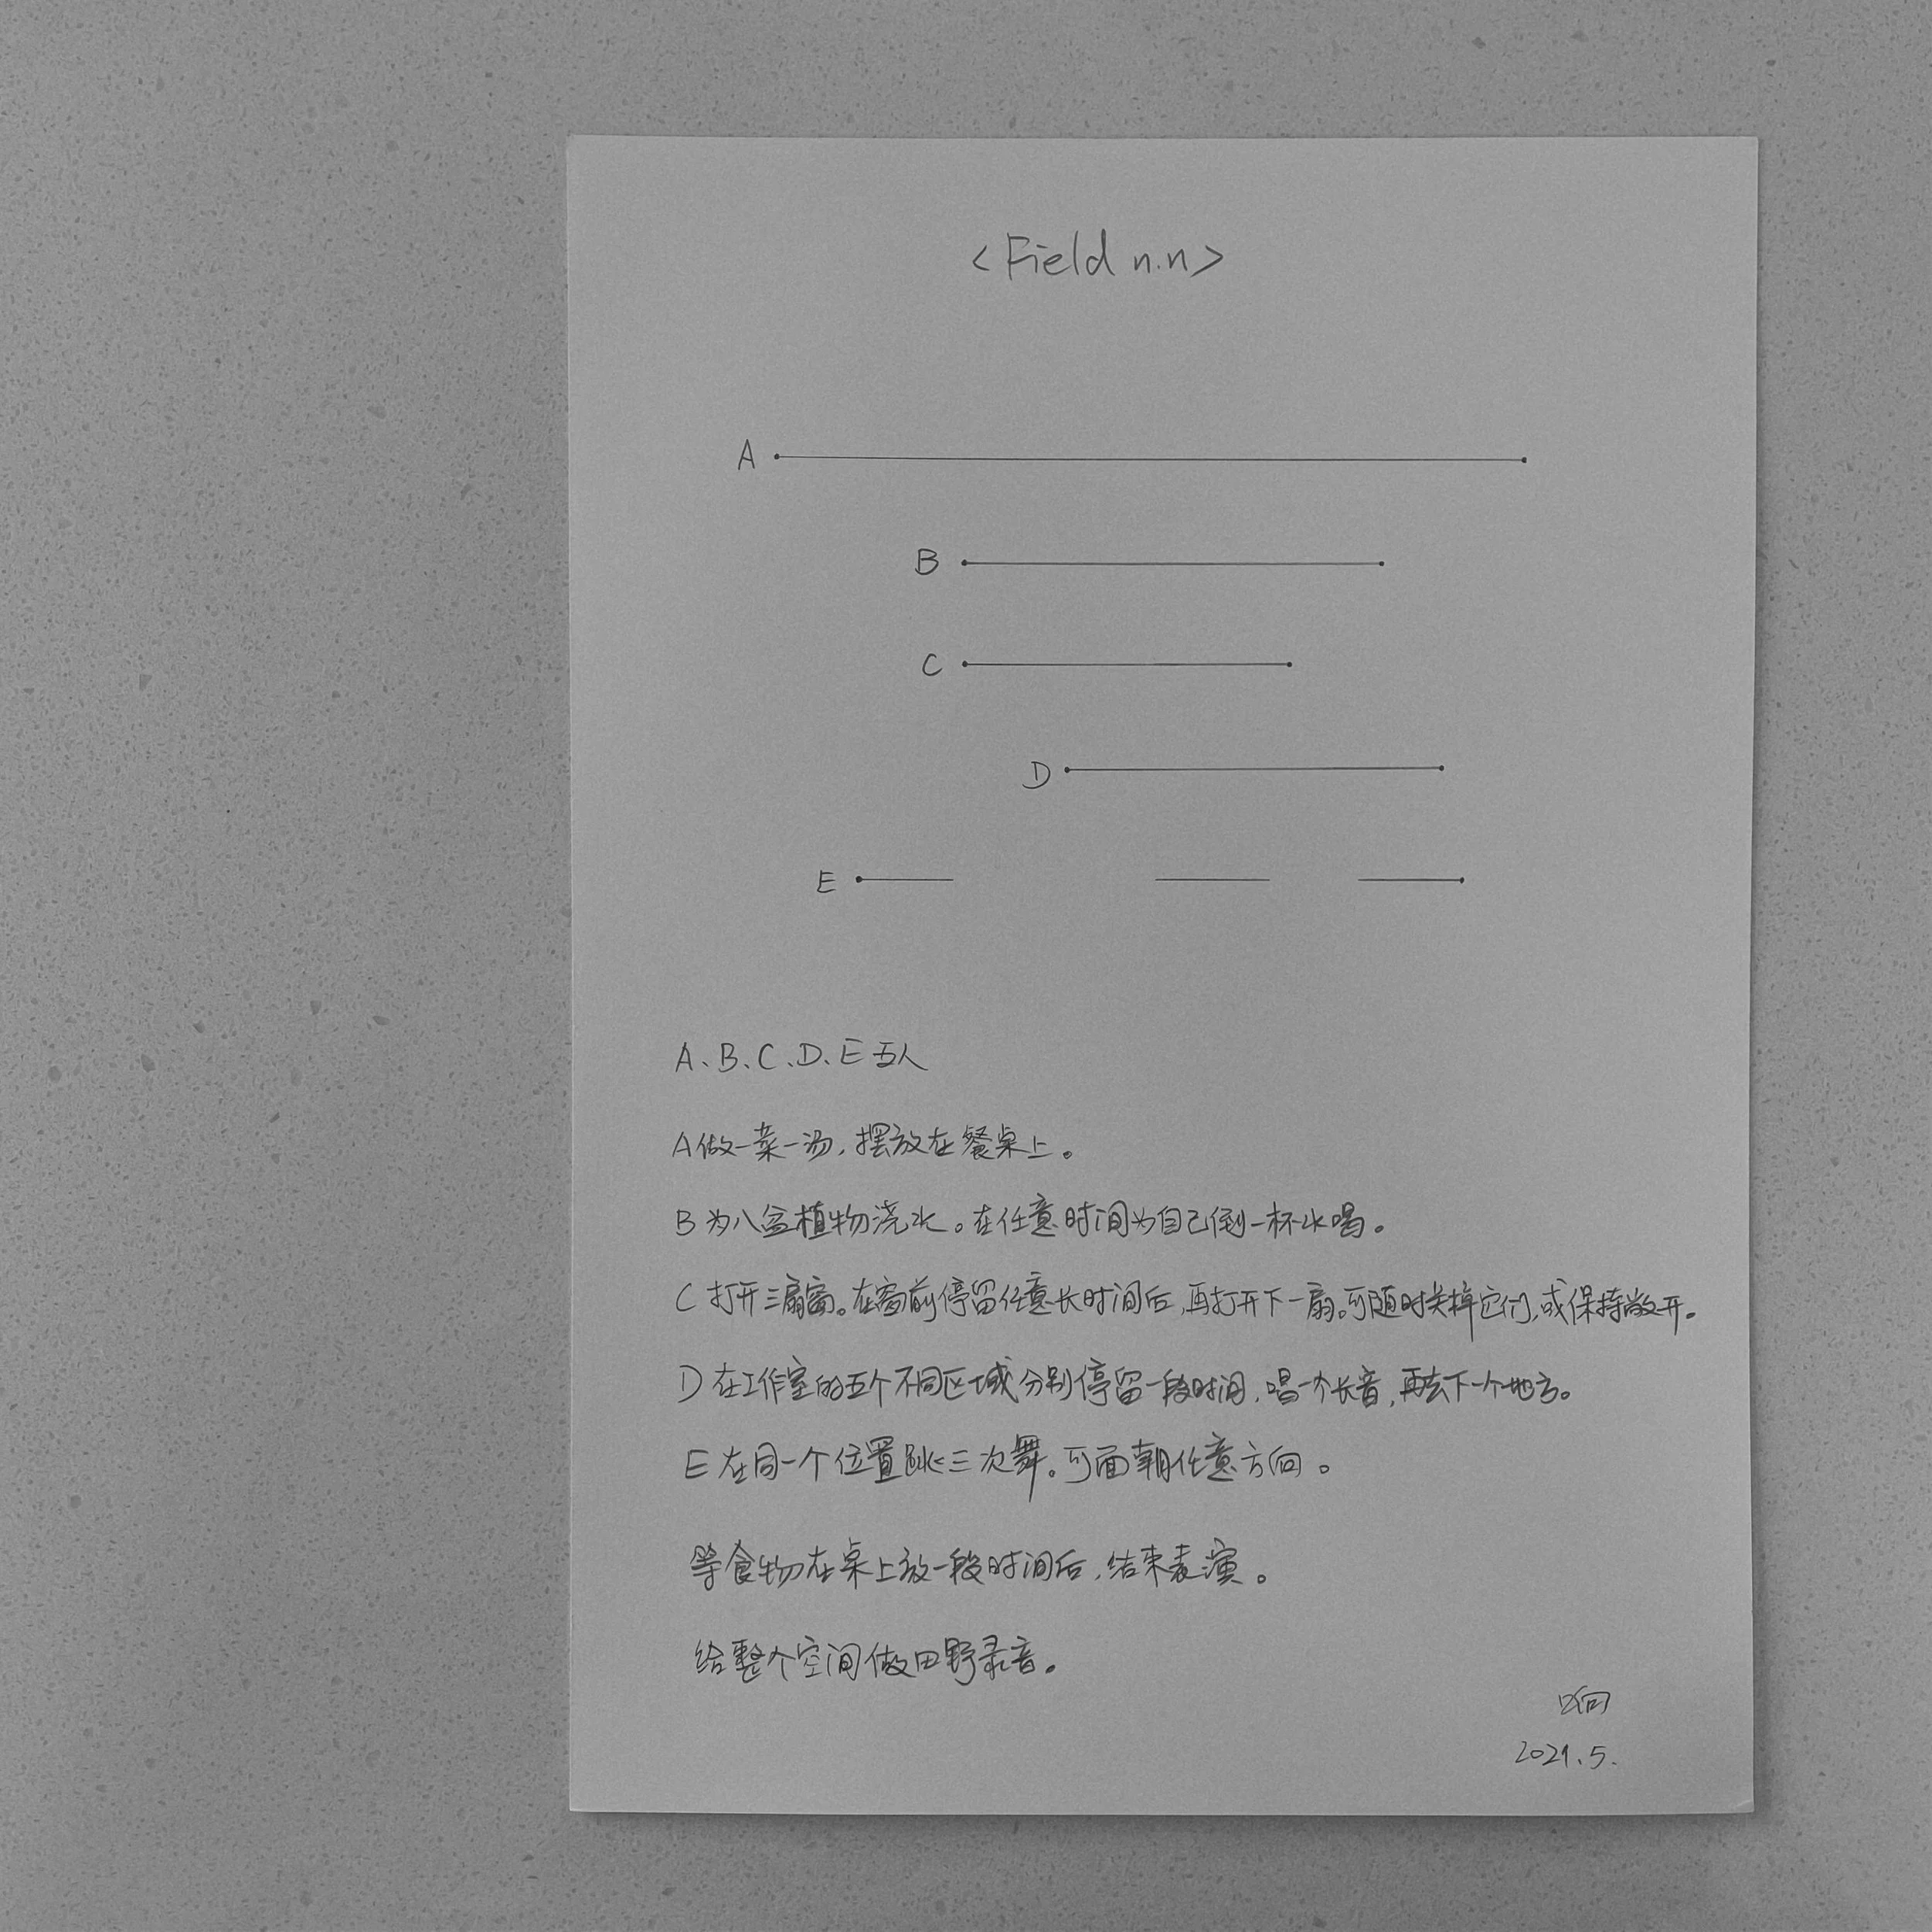 <Field n.n>
A
B
C
D
E
A、B、C、D、E 五人
A做一菜一汤，摆放在餐桌上。
B 为八盆植物浇水。在任意时间为自己倒一杯水喝。
C 打开三扇窗。在窗前停留任意长时间后，再打开下一扇。可随时关掉它们，或保持敞开。
D 在工作室的五个不同区域分别停留一段时间，唱一个长音，再去下一个地方。
E 在同一个位置跳三次舞。可面朝任意方向。
等食物在桌上放一段时间后，结束表演。
给整个空间做田野录音。
2021.5.